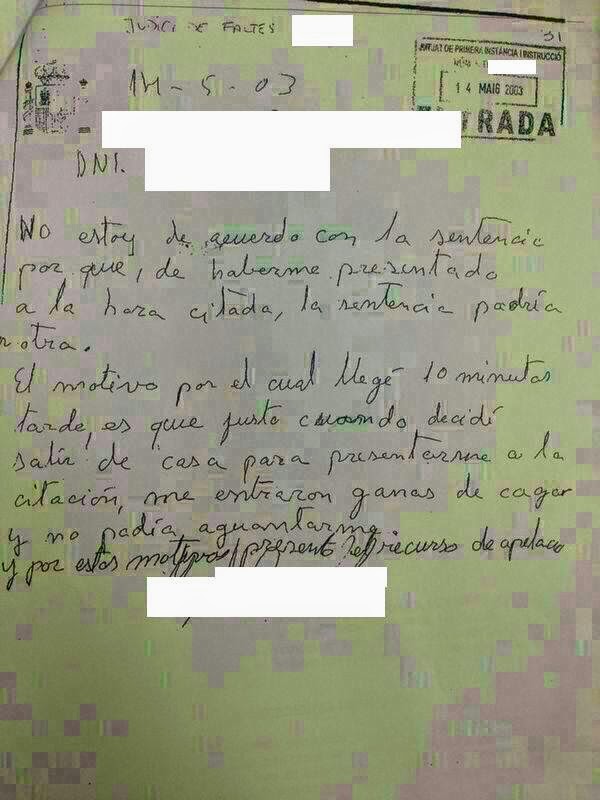 JUDICI DE FALTES
31
JUTJAT DE PRIMERA INSTÀNCIA I INSTRUCCIÓ
14 MAIG 2003
TRADA
14-5-03
DNI.
No estoy de acuerdo con la sentencia
por que, de haberme presentado
a la hora citada, la sentencia podría
r otra.
El motivo por el cual llegé 10 minutos
tarde, es que justo cuando decidí
salir de casa para presentarme a la
citación, me entraron ganas de cagar
y no podía aguantarme
y por estos motivos presento el recurso de apelaco